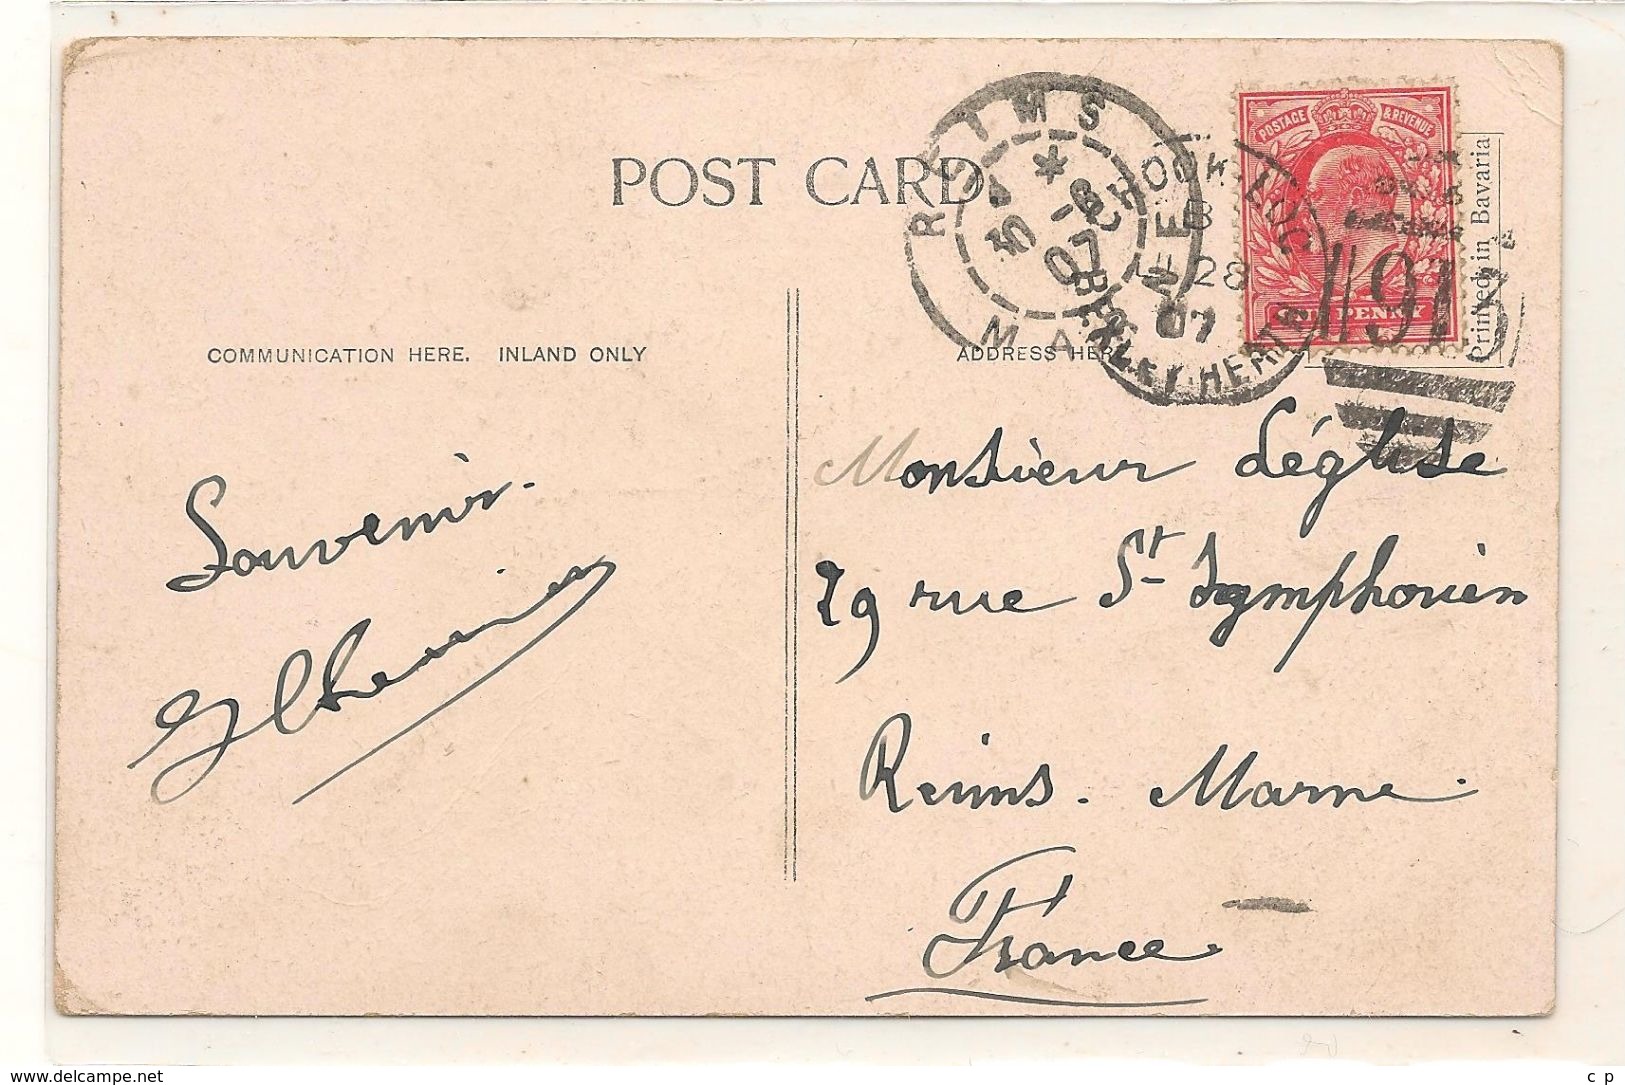 POST CARD
COMMUNICATION HERE. INLAND ONLY
ADDRESS HERE
Printed in Bavaria
POSTAGE & REVENUE
ONE PENNY
REIMS
MARNE
30 -8
07
28
07
913
Souvenir.
Monsieur Léglise
29 rue St Symphorien
Reims. Marne.
France
www.delcampe.net
c p